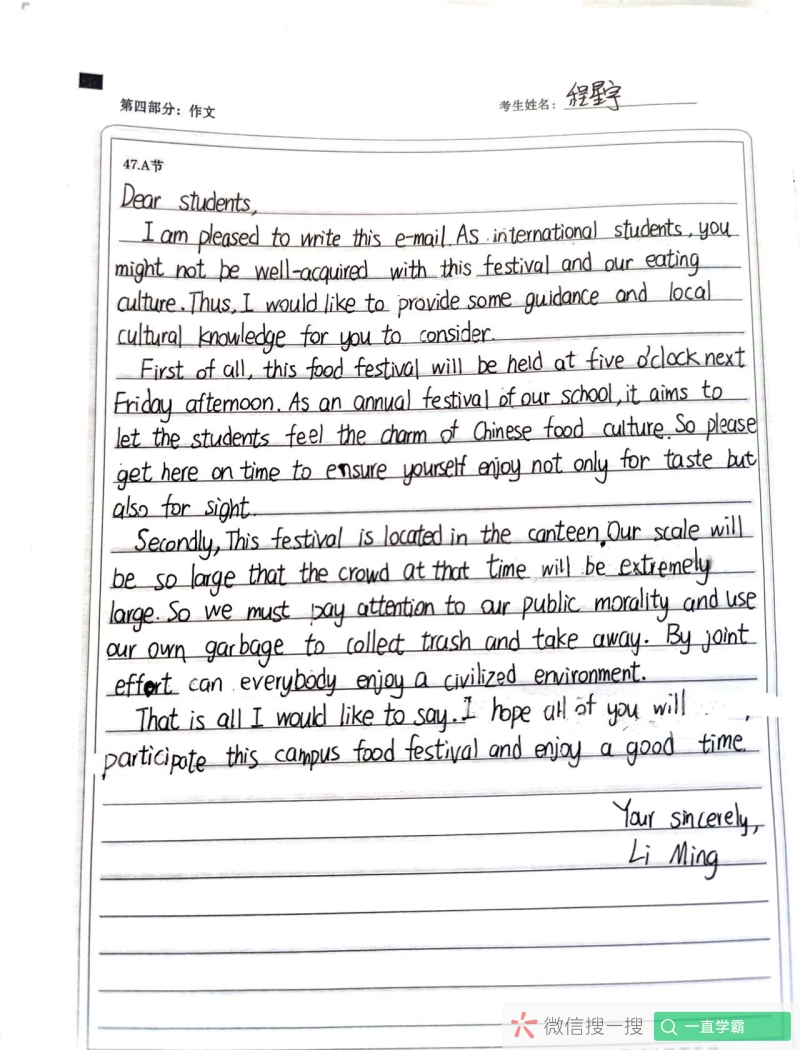 第四部分：作文
考生姓名：程星宇
47.A节
Dear students,
I am pleased to write this e-mail. As international students, you
might not be well-acquired with this festival and our eating
culture. Thus, I would like to provide some guidance and local
cultural knowledge for you to consider.
First of all, this food festival will be held at five o'clock next
Friday afternoon. As an annual festival of our school, it aims to
let the students feel the charm of Chinese food culture. So please
get here on time to ensure yourself enjoy not only for taste but
also for sight.
Secondly, This festival is located in the canteen. Our scale will
be so large that the crowd at that time will be extremely
large. So we must pay attention to our public morality and use
our own garbage to collect trash and take away. By joint
effort can everybody enjoy a civilized environment.
That is all I would like to say. I hope all of you will
participate this campus food festival and enjoy a good time.
Your sincerely,
Li Ming
微信搜一搜
一直学霸